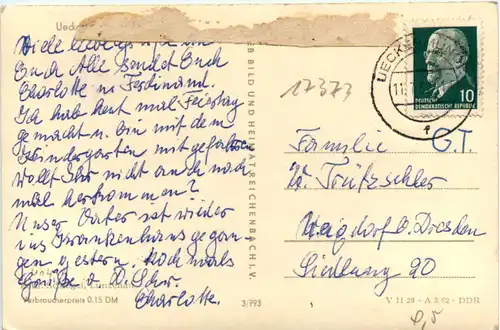 Ueck
Viele
Euch Alle sendet Euch
Charlotte u. Ferdinand.
Ich hab heut mal Feiertag
gemacht u. bin mit dem
Kindergarten mit gefahren
Wollt Ihr nicht auch noch
mal herkommen?
Unser Vater ist wieder
ins Krankenhaus gegan
gen gestern. Nochmals
Grüße v. D. Schw.
Charlotte.
Verbraucherpreis 0.15 DM
BILD UND HEIMAT REICHENBACH I. V.
3/793
UECKE
10
DEUTSCHE
DEMOKRATISCHE REPUBLIK
f
17373
Familie G.T.
W. Trützschler
Weigdorf b. Dresden
Siedlung 20
V 11 28 - A 3/62 - DDR
0,5